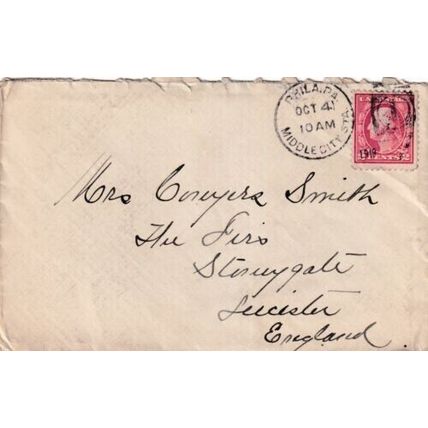 PHILA., PA.
OCT 4
10 AM
MIDDLE CITY STA.
1919
2 CENTS 2
Mrs Conyers Smith
The Firs
Stoneygate
Leicester
England